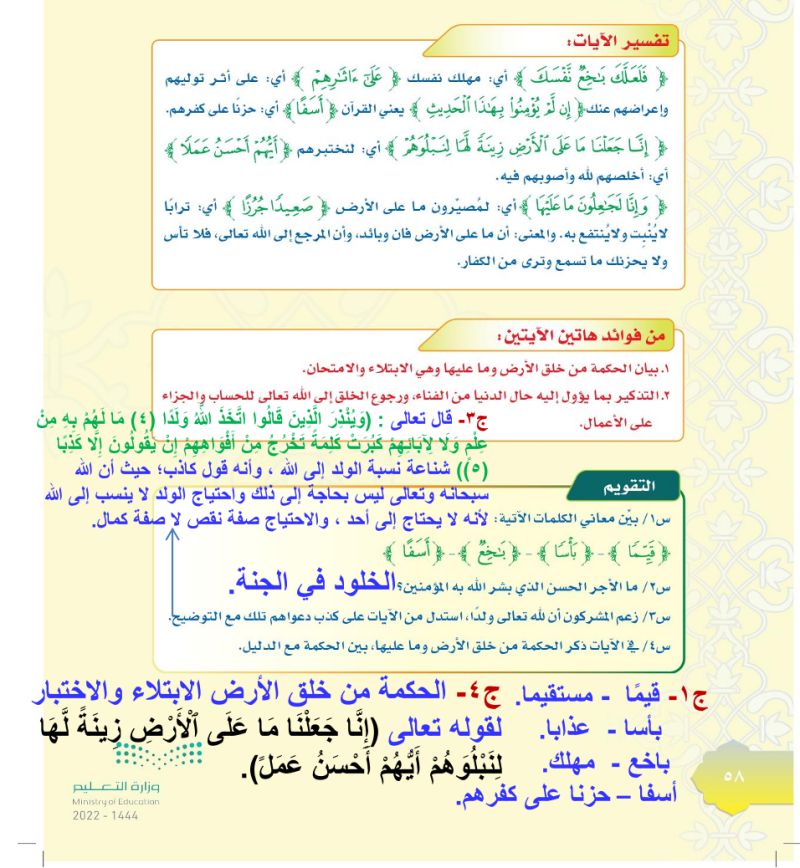 تفسير الآيات:
﴿ فَلَعَلَّكَ بَٰخِعٌ نَّفْسَكَ ﴾ أي: مهلك نفسك ﴿ عَلَىٰٓ ءَاثَٰرِهِمْ ﴾ أي: على أثر توليهم
وإعراضهم عنك ﴿ إِن لَّمْ يُؤْمِنُوا۟ بِهَٰذَا ٱلْحَدِيثِ ﴾ يعني القرآن ﴿ أَسَفًا ﴾ أي: حزنًا على كفرهم.
﴿ إِنَّا جَعَلْنَا مَا عَلَى ٱلْأَرْضِ زِينَةً لَّهَا لِنَبْلُوَهُمْ ﴾ أي: لنختبرهم ﴿ أَيُّهُمْ أَحْسَنُ عَمَلًا ﴾
أي: أخلصهم لله وأصوبهم فيه.
﴿ وَإِنَّا لَجَٰعِلُونَ مَا عَلَيْهَا ﴾ أي: لمُصيّرون ما على الأرض ﴿ صَعِيدًا جُرُزًا ﴾ أي: ترابًا
لا يُنْبِت ولا يُنتفع به. والمعنى: أن ما على الأرض فان وبائد، وأن المرجع إلى الله تعالى، فلا تأس
ولا يحزنك ما تسمع وترى من الكفار.
من فوائد هاتين الآيتين:
١. بيان الحكمة من خلق الأرض وما عليها وهي الابتلاء والامتحان.
٢. التذكير بما يؤول إليه حال الدنيا من الفناء، ورجوع الخلق إلى الله تعالى للحساب والجزاء
على الأعمال.
ج٣- قال تعالى : (وَيُنْذِرَ الَّذِينَ قَالُوا اتَّخَذَ اللَّهُ وَلَدًا (٤) مَا لَهُمْ بِهِ مِنْ
عِلْمٍ وَلَا لِآبَائِهِمْ كَبُرَتْ كَلِمَةً تَخْرُجُ مِنْ أَفْوَاهِهِمْ إِنْ يَقُولُونَ إِلَّا كَذِبًا
(٥)) شناعة نسبة الولد إلى الله ، وأنه قول كاذب؛ حيث أن الله
سبحانه وتعالى ليس بحاجة إلى ذلك واحتياج الولد لا ينسب إلى الله
لأنه لا يحتاج إلى أحد ، والاحتياج صفة نقص لا صفة كمال.
التقويم
س١/ بيّن معاني الكلمات الآتية:
﴿ قَيِّمًا ﴾ - ﴿ بَأْسًا ﴾ - ﴿ بَٰخِعٌ ﴾ - ﴿ أَسَفًا ﴾
س٢/ ما الأجر الحسن الذي بشر الله به المؤمنين؟ الخلود في الجنة.
س٣/ زعم المشركون أن لله تعالى ولدًا، استدل من الآيات على كذب دعواهم تلك مع التوضيح.
س٤/ في الآيات ذكر الحكمة من خلق الأرض وما عليها، بين الحكمة مع الدليل.
ج١- قيمًا - مستقيما.
بأسا - عذابا.
باخع - مهلك.
أسفا – حزنا على كفرهم.
ج٤- الحكمة من خلق الأرض الابتلاء والاختبار
لقوله تعالى (إِنَّا جَعَلْنَا مَا عَلَى ٱلْأَرْضِ زِينَةً لَّهَا
لِنَبْلُوَهُمْ أَيُّهُمْ أَحْسَنُ عَمَلً).
وزارة التعليم
Ministry of Education
2022 - 1444
٥٨